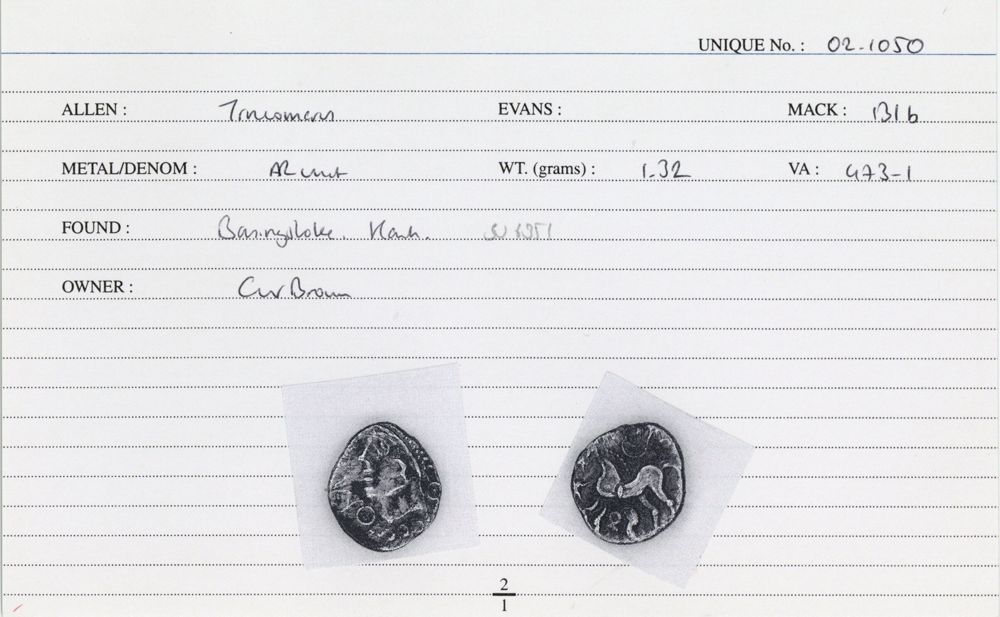 UNIQUE No. : 02-1050
ALLEN : EVANS : MACK : 131b
METAL/DENOM : AR unit WT. (grams) : 1.32 VA : 473-1
FOUND : Basingstoke. Hants. SU 6351
OWNER : Brown
2
1